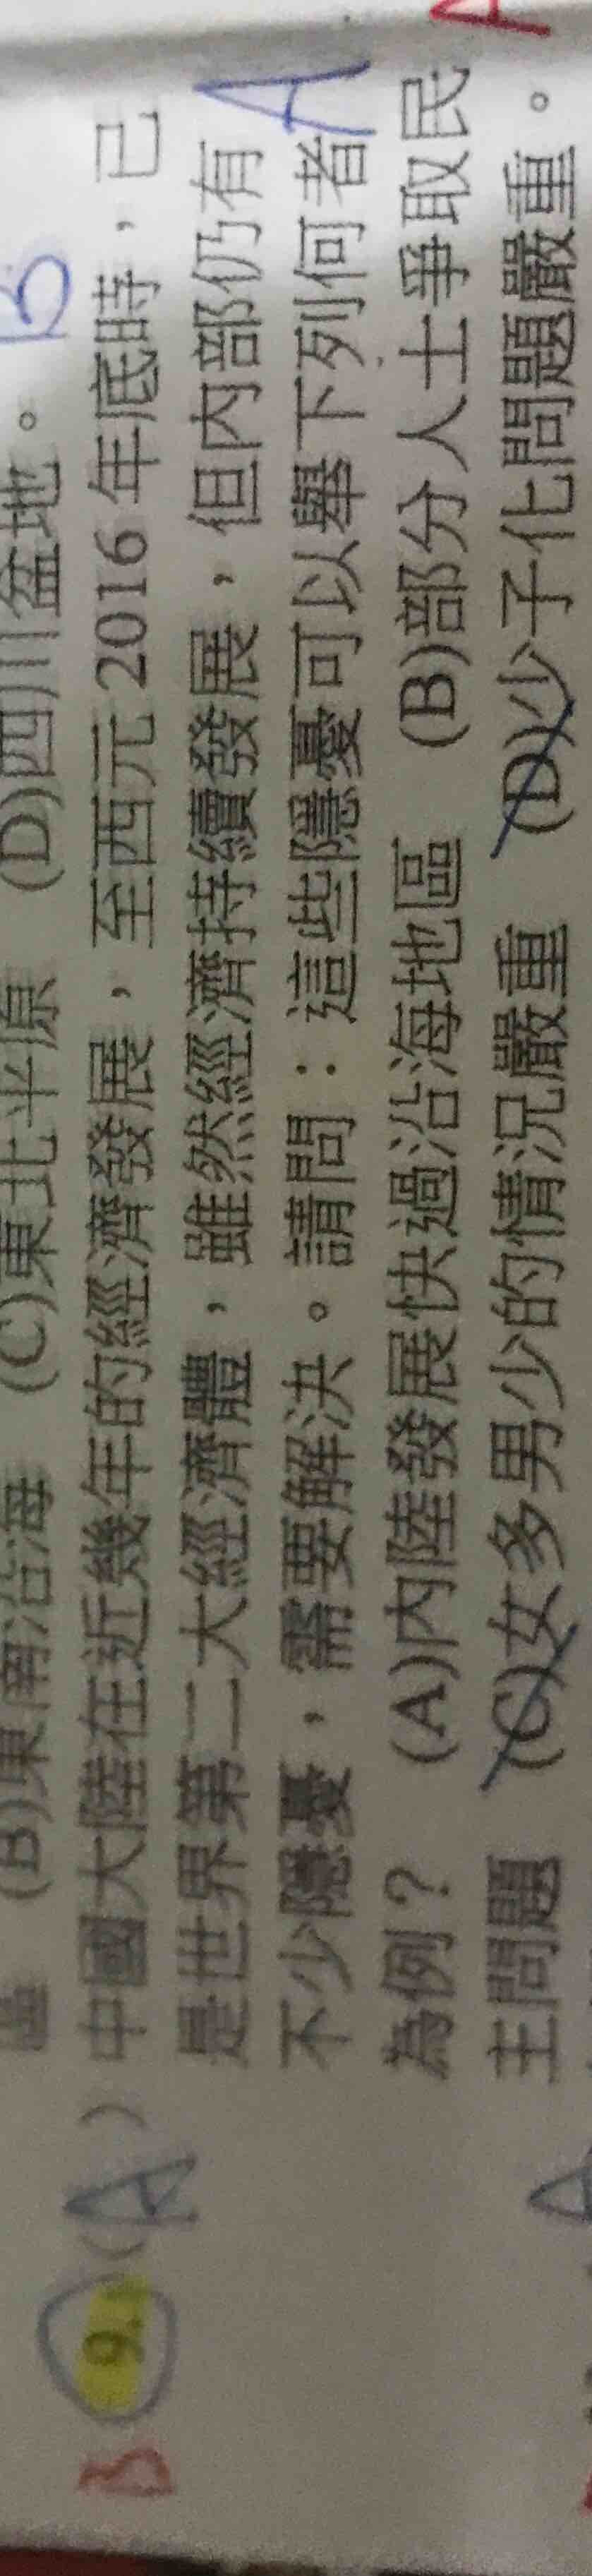 區 (B)東南沿海 (C)東北平原 (D)四川盆地。 B
B 9. ( A ) 中國大陸在近幾年的經濟發展，至西元2016年底時，已
是世界第二大經濟體，雖然經濟持續發展，但內部仍有
不少隱憂，需要解決。請問：這些隱憂可以舉下列何者 A
為例？ (A)內陸發展快過沿海地區 (B)部分人士爭取民
主問題 (C)女多男少的情況嚴重 (D)少子化問題嚴重。
A